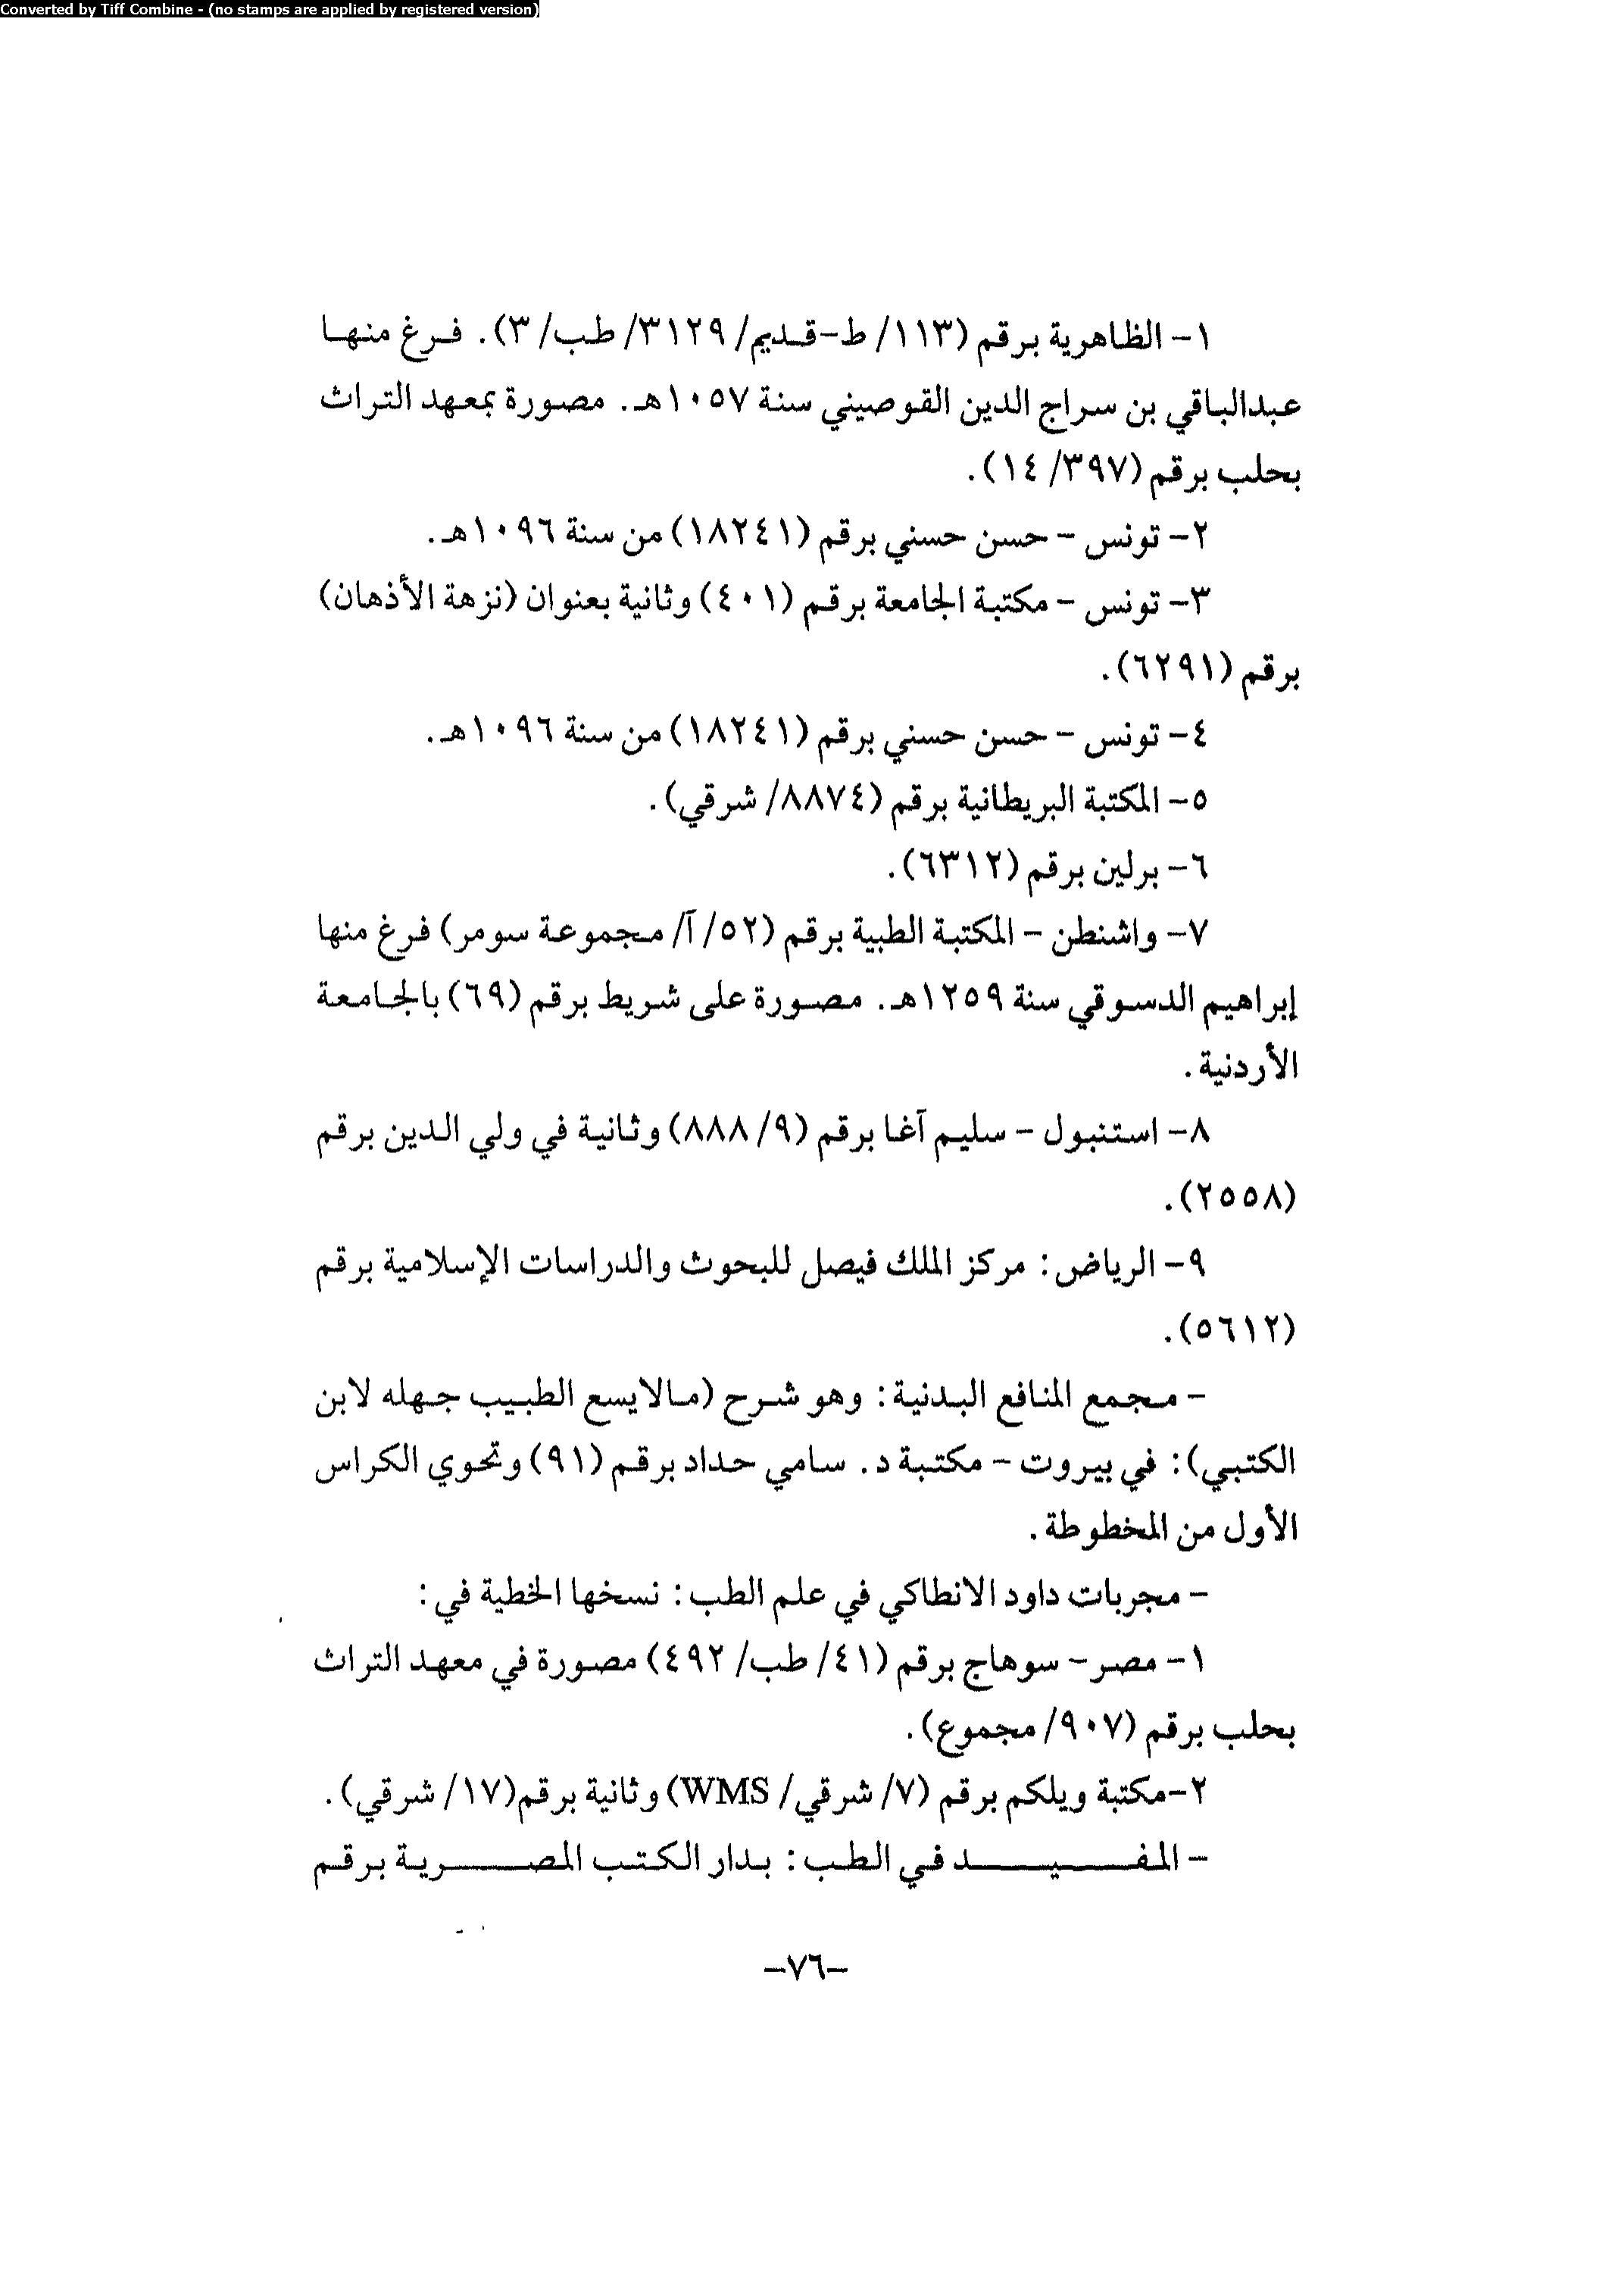 Converted by Tiff Combine - (no stamps are applied by registered version)
١- الظاهرية برقم (١١٣/ ط-قديم/ ٣١٢٩/ طب/ ٣). فرغ منها
عبدالباقي بن سراج الدين القوصيني سنة ١٠٥٧هـ. مصورة بمعهد التراث
بحلب برقم (٣٩٧/ ١٤).
٢- تونس - حسن حسني برقم (١٨٢٤١) من سنة ١٠٩٦هـ.
٣- تونس - مكتبة الجامعة برقم (٤٠١) وثانية بعنوان (نزهة الأذهان)
برقم (٦٢٩١).
٤- تونس - حسن حسني برقم (١٨٢٤١) من سنة ١٠٩٦هـ.
٥- المكتبة البريطانية برقم (٨٨٧٤/ شرقي).
٦- برلين برقم (٦٣١٢).
٧- واشنطن - المكتبة الطبية برقم (٥٢/ آ/ مجموعة سومر) فرغ منها
إبراهيم الدسوقي سنة ١٢٥٩هـ. مصورة على شريط برقم (٦٩) بالجامعة
الأردنية.
٨- استنبول - سليم آغا برقم (٩/ ٨٨٨) وثانية في ولي الدين برقم
(٢٥٥٨).
٩- الرياض: مركز الملك فيصل للبحوث والدراسات الإسلامية برقم
(٥٦١٢).
- مجمع المنافع البدنية: وهو شرح (مالايسع الطبيب جهله لابن
الكتبي): في بيروت - مكتبة د. سامي حداد برقم (٩١) وتحوي الكراس
الأول من المخطوطة.
- مجربات داود الانطاكي في علم الطب: نسخها الخطية في:
١- مصر- سوهاج برقم (٤١/ طب/ ٤٩٢) مصورة في معهد التراث
بحلب برقم (٩٠٧/ مجموع).
٢-مكتبة ويلكم برقم (٧/ شرقي/ WMS) وثانية برقم(١٧/ شرقي).
- المفيد في الطب: بدار الكتب المصرية برقم
-٧٦-